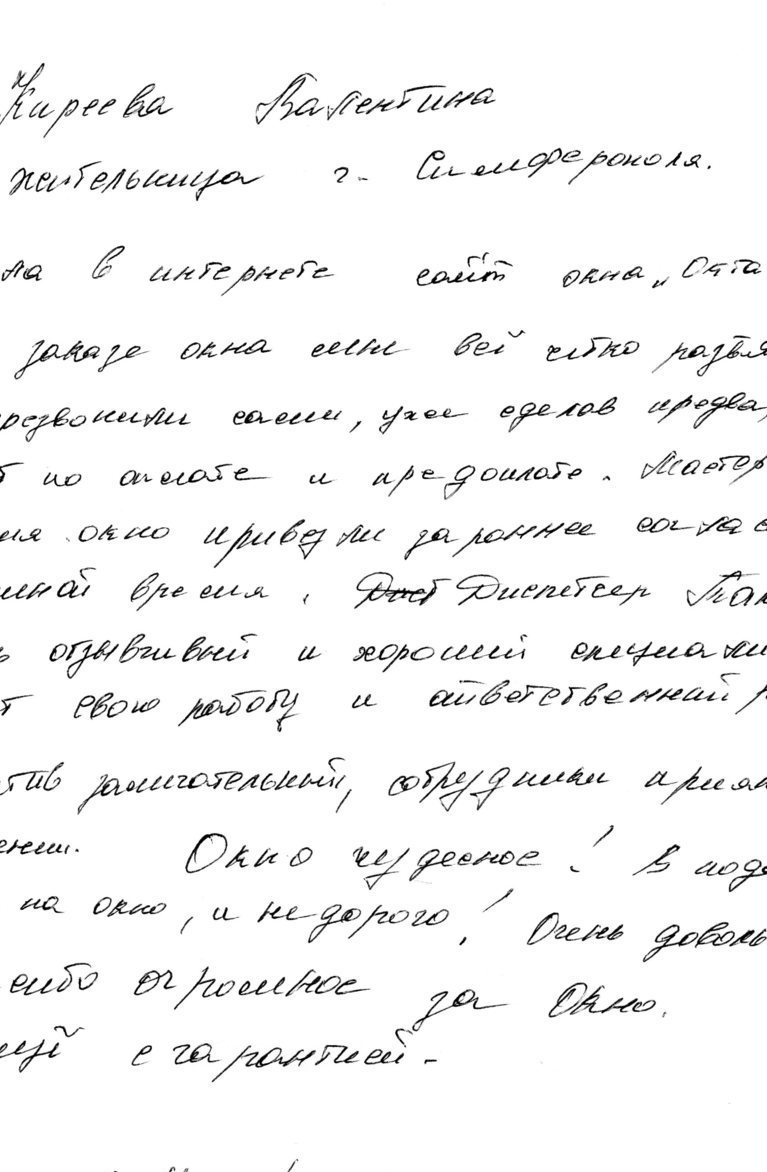 Киреева Валентина
жительница г. Симферополя.
ла в интернете сайт окна „Окта
заказе окна мне всё чётко разъя
резвонили сами, уже сделав предва
т по оплате и предоплате. Мастер
ия окно привезли заранее соглас
нной время. Дист Диспетчер
ь отзывчивый и хороший специали
т свою работу и ответственный р
тив замечательный, сотрудники прият
ении. Окно чудесное! В под
на окно, и недорого! Очень доволь
сибо огромное за окно.
с гарантией.